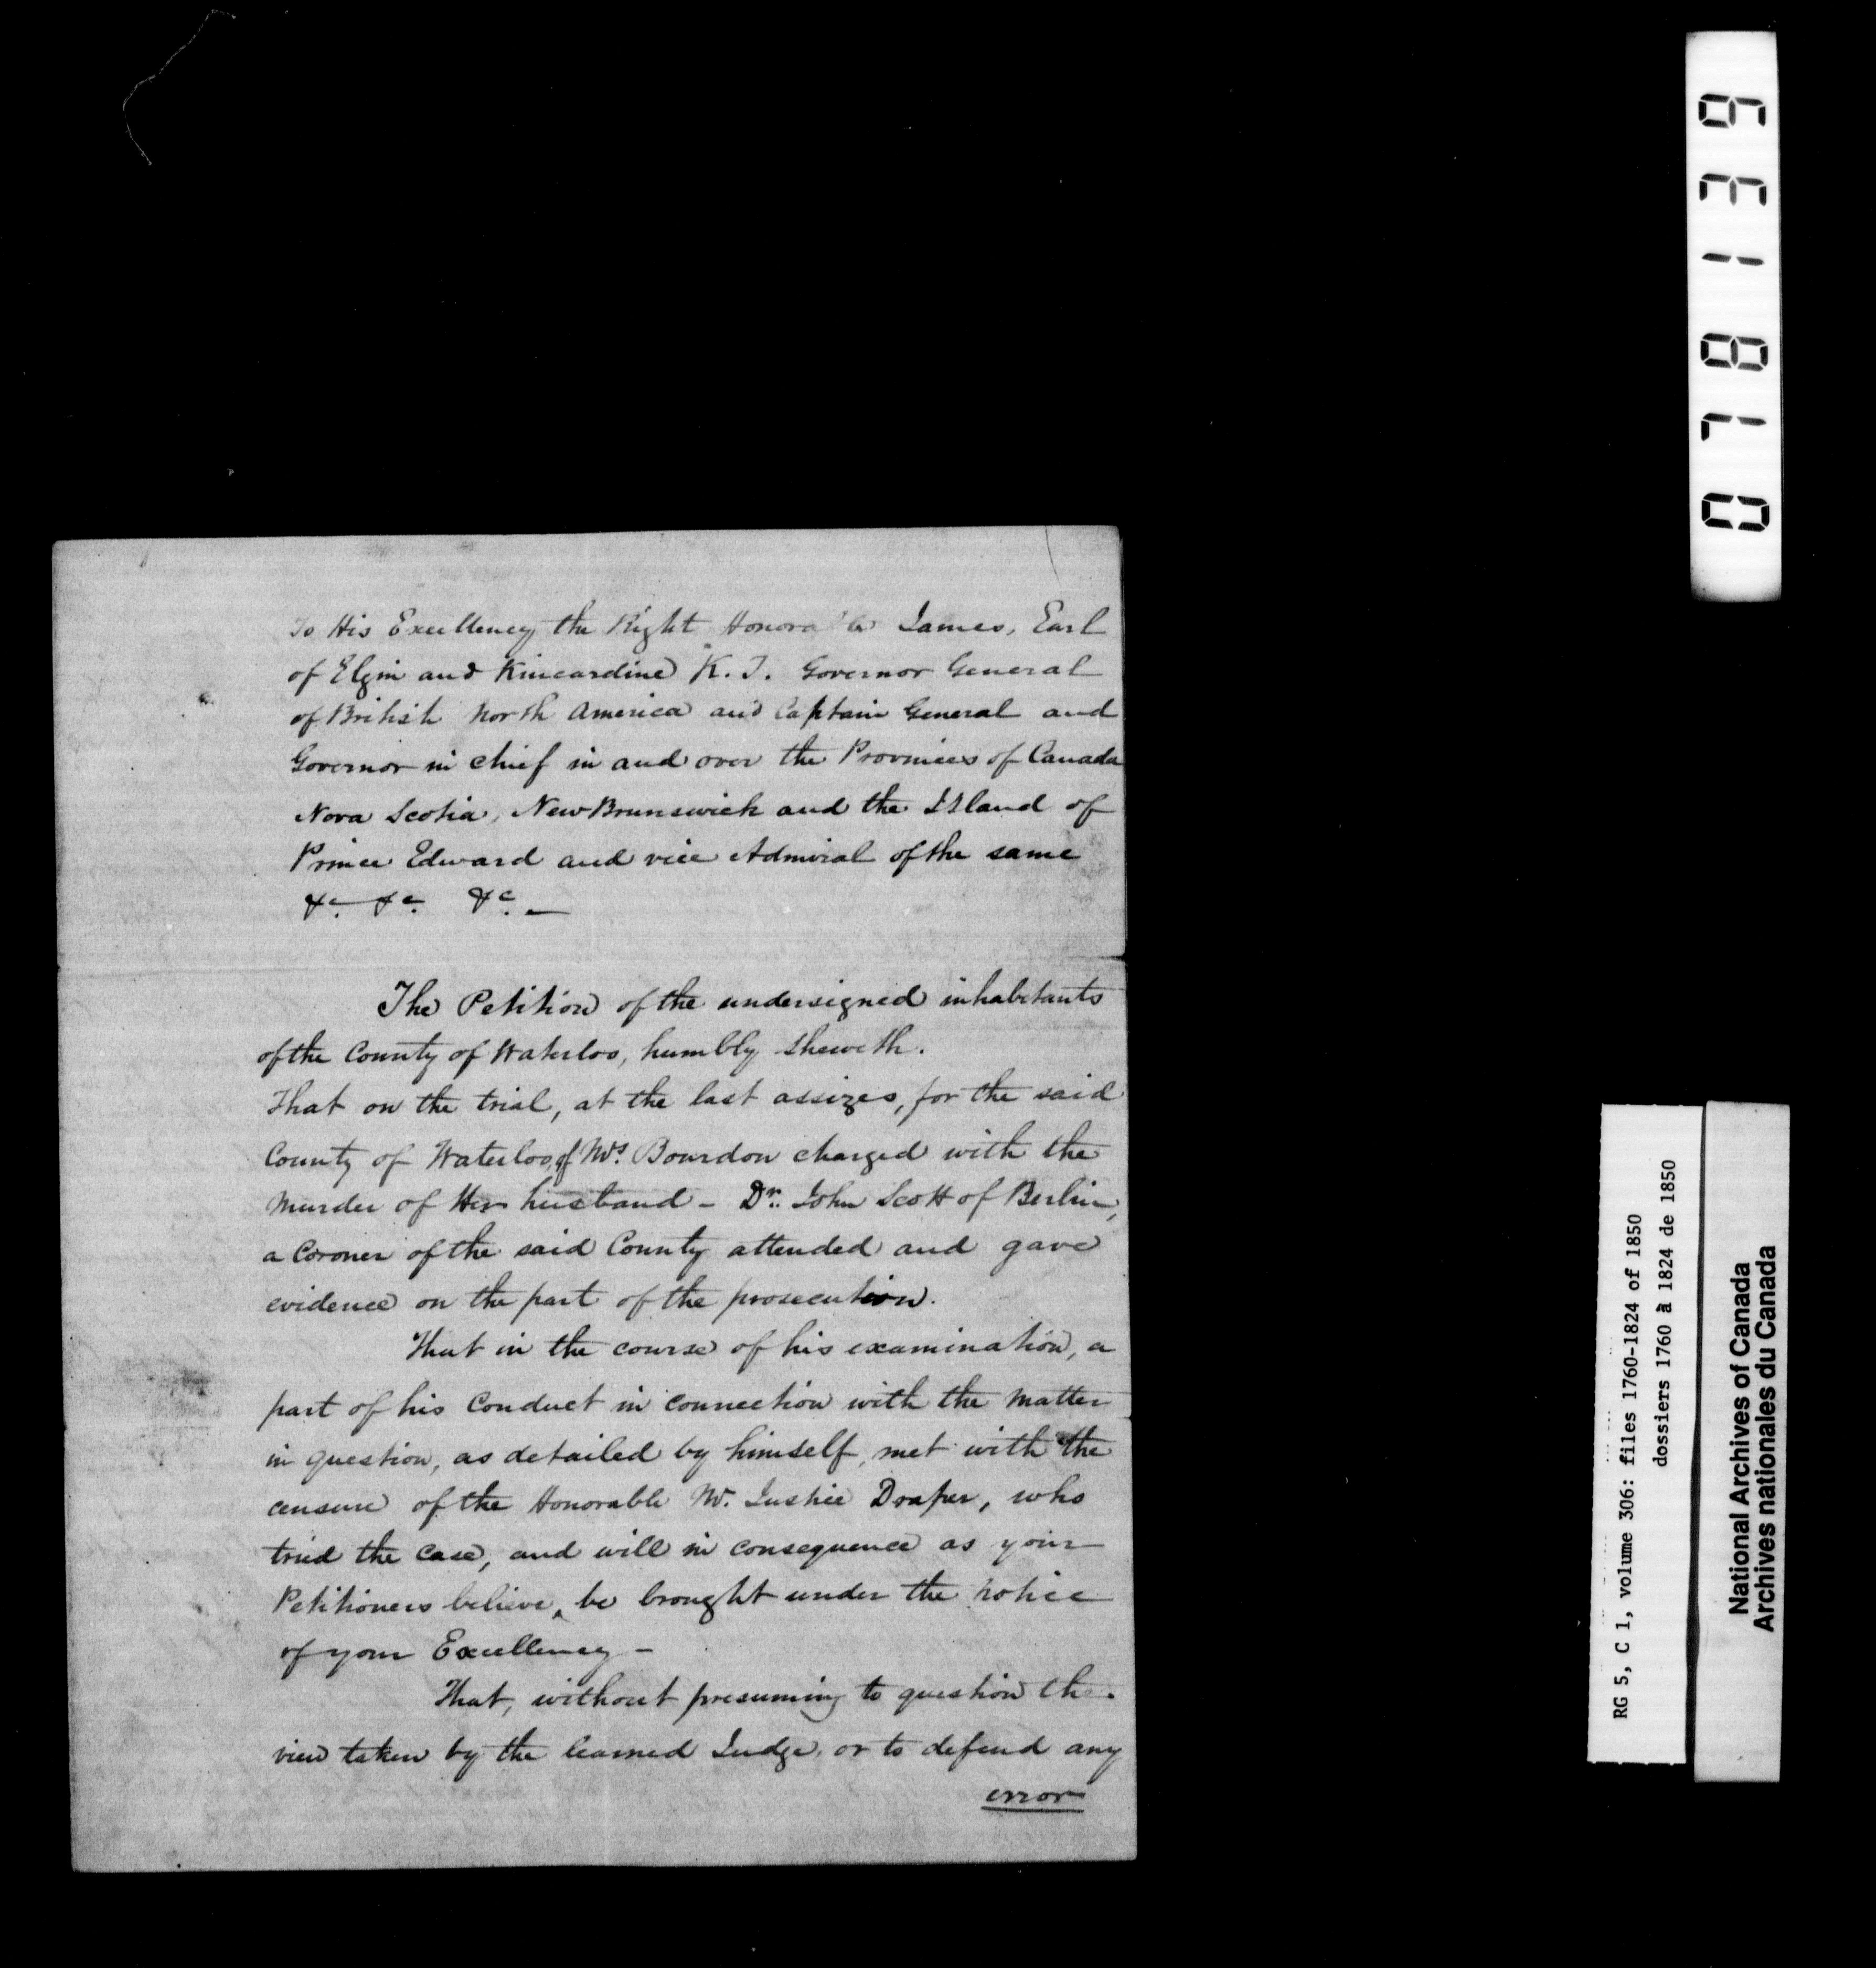 To His Excellency the Right Honorable James, Earl
of Elgin and Kincardine K. T. Governor General
of British North America and Captain General and
Governor in chief in and over the Provinces of Canada
Nova Scotia, New Brunswick and the Island of
Prince Edward and vice Admiral of the same
&c. &c. &c. —
The Petition of the undersigned inhabitants
of the County of Waterloo, humbly sheweth.
That on the trial, at the last assizes, for the said
County of Waterloo, of Mrs. Bourdon charged with the
murder of Her husband - Dr. John Scott of Berlin,
a Coroner of the said County attended and gave
evidence on the part of the prosecution.
That in the course of his examination, a
part of his Conduct in connection with the matter
in question, as detailed by himself, met with the
censure of the Honorable Mr. Justice Draper, who
tried the case, and will in consequence as your
Petitioners believe, be brought under the notice
of your Excellency -
That, without presuming to question the
view taken by the learned Judge, or to defend any
error
078139
RG 5, C 1, volume 306: files 1760-1824 of 1850
dossiers 1760 à 1824 de 1850
National Archives of Canada
Archives nationales du Canada